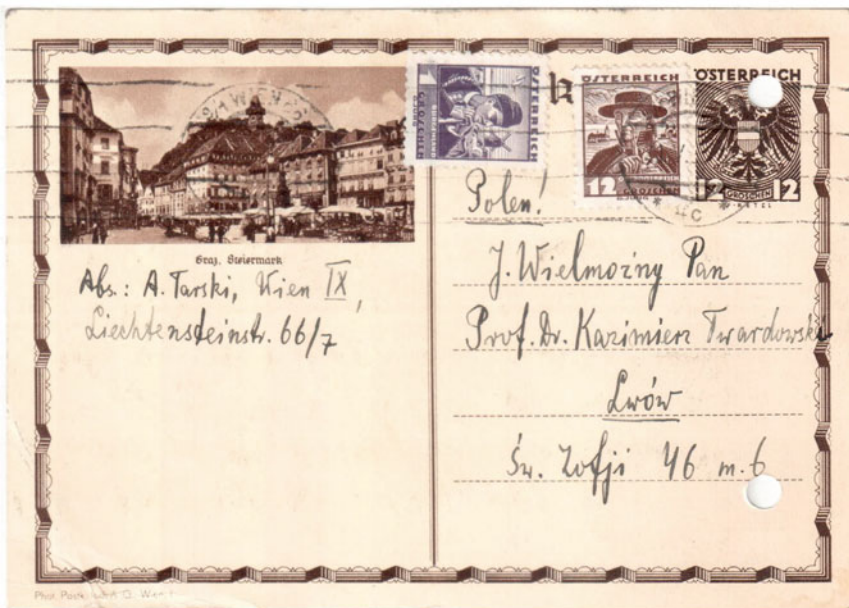 Graz, Steiermark
Abs.: A. Tarski, Wien IX,
Liechtensteinstr. 66/7
GROSCHEN
1
ÖSTERREICH
ÖSTERREICH
12
GROSCHEN
ÖSTERREICH
12 GROSCHEN 12
Polen!
J. Wielmożny Pan
Prof. Dr. Kazimierz Twardowski
Lwów
Św. Zofji 46 m. 6